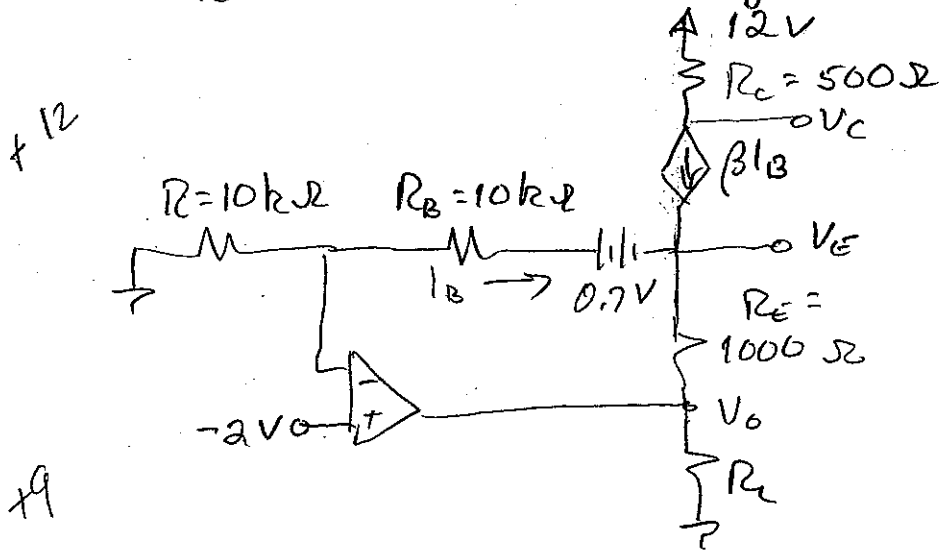 12V
R_C = 500Ω
V_C
+12
βI_B
R=10kΩ R_B=10kΩ
V_E
I_B → 0.7V
R_E =
1000 Ω
-
+
-2V
V_o
R_L
+9